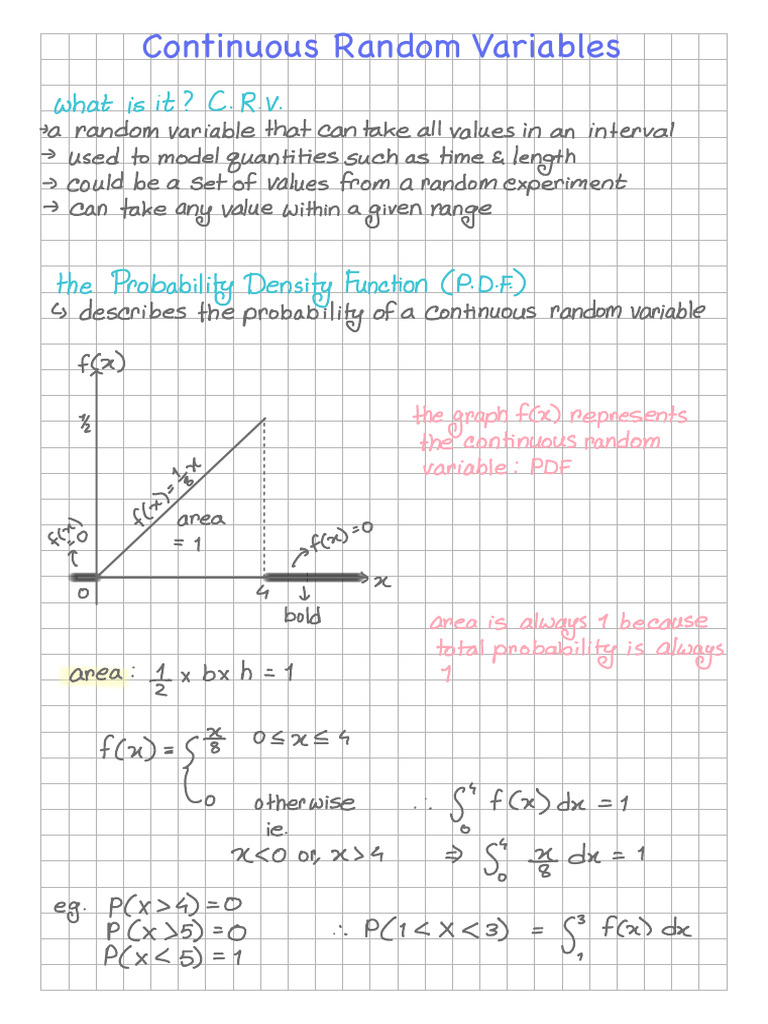 Continuous Random Variables
what is it? C.R.V.
→ a random variable that can take all values in an interval
→ used to model quantities such as time & length
→ could be a set of values from a random experiment
→ can take any value within a given range
the Probability Density Function (P.D.F.)
↳ describes the probability of a continuous random variable
f(x)
1/2
f(x) = 1/8 x
area
= 1
f(x)=0
f(x)=0
0
4
x
bold
the graph f(x) represents
the continuous random
variable: PDF
area is always 1 because
total probability is always
1
area: 1/2 x b x h = 1
f(x) = { x/8 0 ≤ x ≤ 4
0 otherwise
ie.
x<0 or, x>4
∴ ∫₀⁴ f(x) dx = 1
⇒ ∫₀⁴ x/8 dx = 1
eg. P(X>4)=0
P(X>5)=0
P(X<5)=1
∴ P(1<X<3) = ∫₁³ f(x) dx